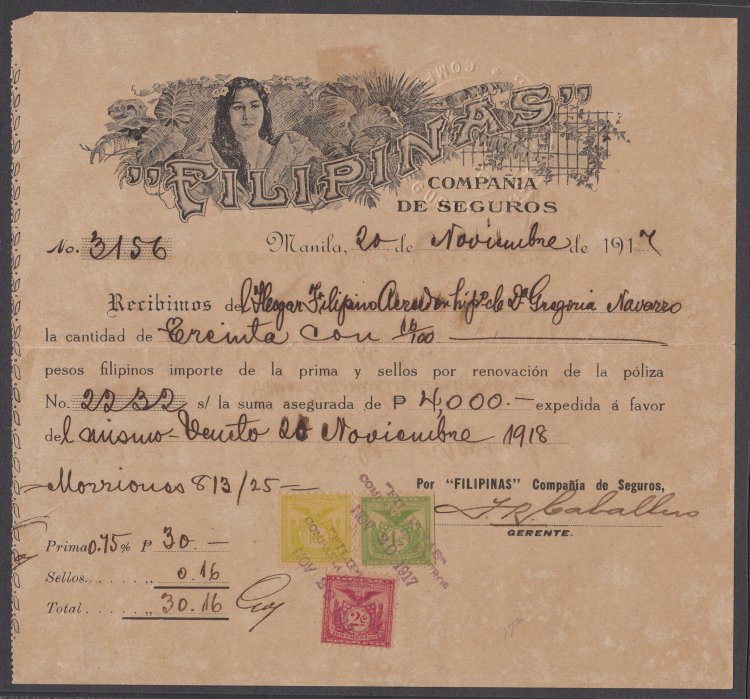 "FILIPINAS"
COMPAÑIA
DE SEGUROS
No. 3156 Manila, 20 de Noviembre de 1917
Recibimos del Hogar Filipino Acreedor hipº de Dª Gregoria Navarro
la cantidad de Treinta con 16/100
pesos filipinos importe de la prima y sellos por renovación de la póliza
No. 2232 s/ la suma asegurada de P 4,000.- expedida á favor
del mismo - Vencto 20 Noviembre 1918
813/25
Por "FILIPINAS" Compañía de Seguros,
J. R. Caballero
GERENTE.
Prima 0.75% P 30.-
Sellos. . . . . ,, 0.16
Total . . . . ,, 30.16
NOV 20 1917
2c